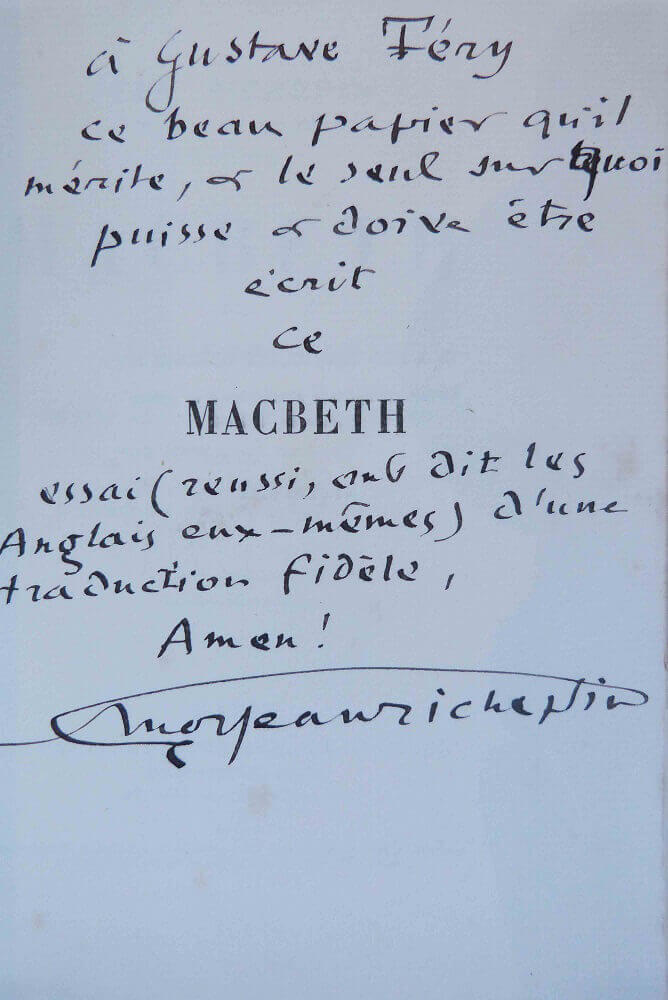 à Gustave Féry
ce beau papier qu'il
mérite, & le seul sur quoi
puisse & doive être
écrit
ce
MACBETH
essai (reussi, ont dit les
Anglais eux-mêmes) d'une
traduction fidèle,
Amen!
Jean richepin